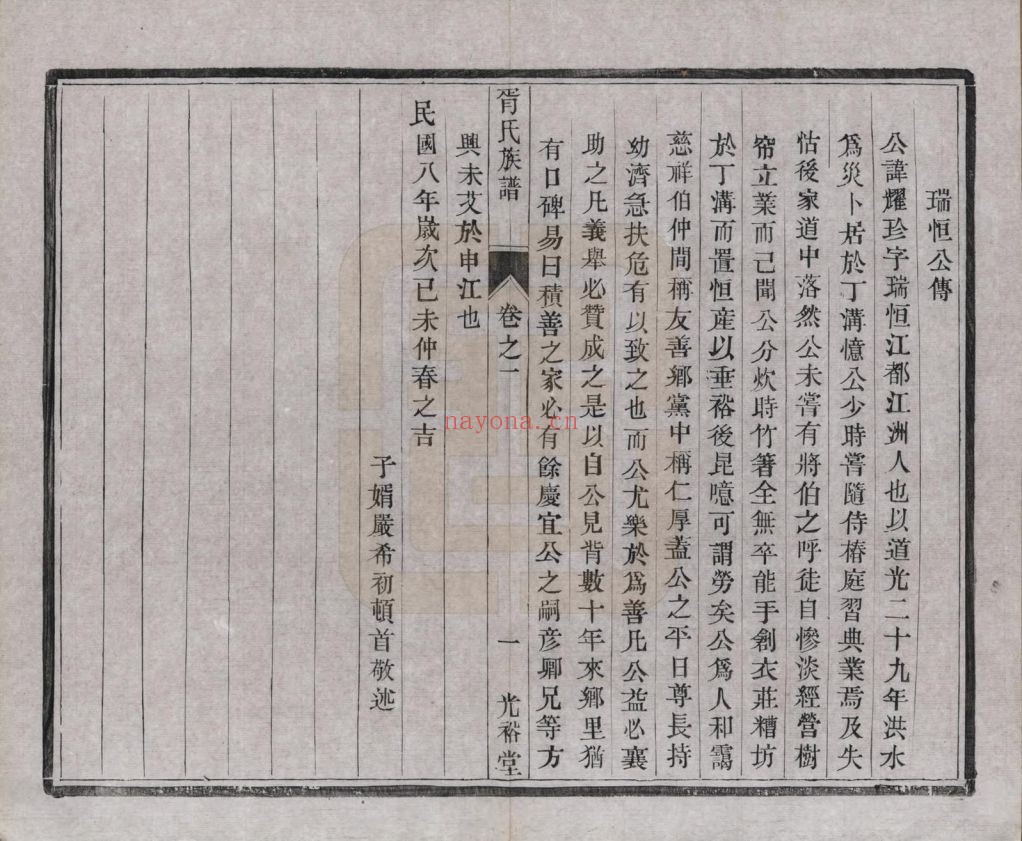 瑞恒公傳
公諱耀珍字瑞恒江都江洲人也以道光二十九年洪水
爲災卜居於丁溝憶公少時嘗隨侍椿庭習典業焉及失
怙後家道中落然公未嘗有將伯之呼徒自慘淡經營樹
帘立業而已聞公分炊時竹箸全無卒能手創衣莊糟坊
於丁溝而置恒産以垂裕後昆噫可謂勞矣公爲人和靄
慈祥伯仲間稱友善鄉黨中稱仁厚蓋公之平日尊長持
幼濟急扶危有以致之也而公尤樂於爲善凡公益必襄
助之凡義舉必贊成之是以自公見背數十年來鄉里猶
有口碑易曰積善之家必有餘慶宜公之嗣彦卿兄等方
胥氏族譜
卷之一
一
光裕堂
興未艾於申江也
民國八年歲次已未仲春之吉
子婿嚴希初頓首敬述
nayona.cn